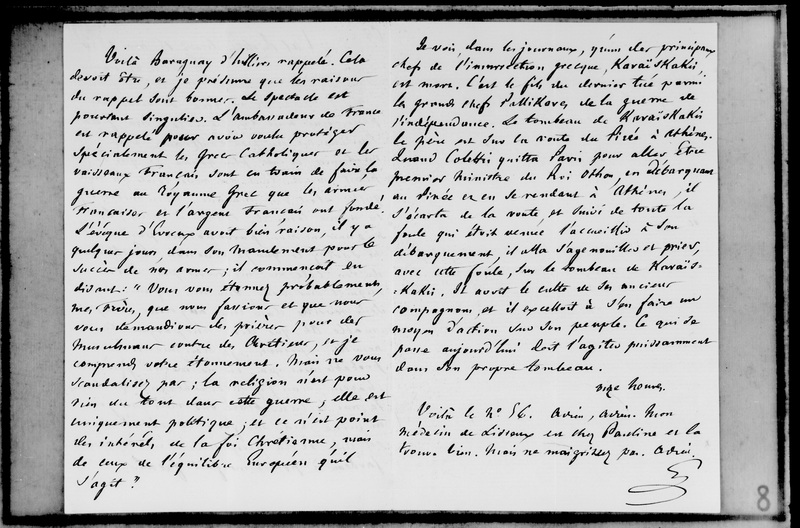 Voilà Baraguay d'Hilliers rappelé. Cela
devoit être, et je présume que les raisons
du rappel sont bonnes. Le spectacle est
pourtant singulier. L'ambassadeur de France
est rappelé pour avoir voulu protéger
spécialement les Grecs Catholiques et les
vaisseaux Français sont en train de faire la
guerre au Royaume Grec que les armes
Françaises et l'argent Français ont fondé.
L'évêque d'Evreux avoit bien raison, il y a
quelques jours, dans son mandement pour le
succès de nos armes; il commençoit en
disant: "Vous vous étonnez probablement,
mes frères, que nous fassions et que nous
vous demandions des prières pour des
Musulmans contre des Chrétiens, et je
comprends votre étonnement. Mais ne vous
scandalisez pas; la religion n'est pour
rien du tout dans cette guerre; elle est
uniquement politique; et ce n'est point
des intérêts de la foi Chrétienne, mais
de ceux de l'équilibre Européen qu'il
s'agit."
Je vois, dans les journaux, qu'un des principaux
chefs de l'insurrection grecque, Karaïskakis
est mort. C'est le fils du dernier tué parmi
les grands chefs Pallikares de la guerre de
l'indépendance. Le tombeau de Karaïskakis
le père est sur la route du Pirée à Athènes.
Quand Colettis quitta Paris pour aller être
premier ministre du Roi Othon, en débarquant
au Pirée et en se rendant à Athènes, il
s'écarta de la route et suivi de toute la
foule qui étoit venue l'accueillir à son
débarquement, il alla s'agenouiller et prier,
avec cette foule, sur le tombeau de Karaïs-
-kakis. Il avoit le culte de ses anciens
compagnons, et il excelloit à s'en faire un
moyen d'action sur son peuple. Ce qui se
passe aujourd'hui doit l'agiter puissamment
dans son propre tombeau.
onze heures.
Voilà le No 56. Adieu, adieu. Mon
médecin de Lisieux est chez Pauline et la
trouve bien. Mais ne maigrissez pas. Adieu.
G
8